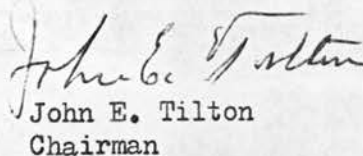 John E. Tilton
John E. Tilton
Chairman